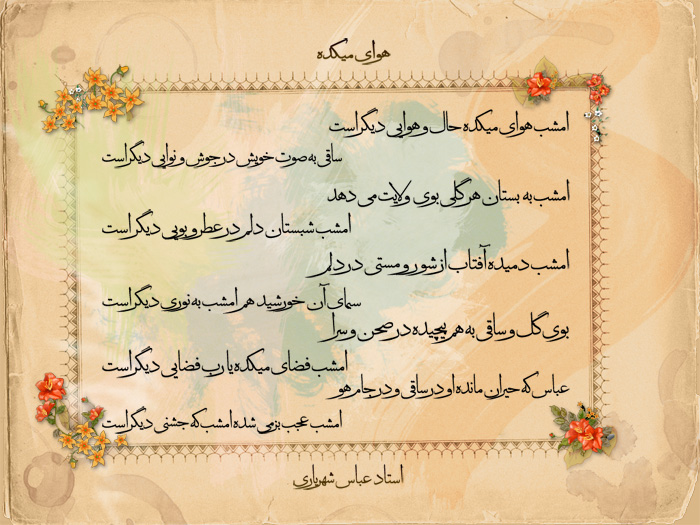 هوای میکده
امشب هوای میکده حال و هوایی دیگر است
ساقی به صوت خویش در جوش و نوایی دیگر است
امشب به بستان هر گلی بوی ولایت می دهد
امشب شبستان دلم در عطر و بویی دیگر است
امشب دمیده آفتاب از شور و مستی در دلم
سیمای آن خورشید هم امشب به نوری دیگر است
بوی گل و ساقی به هم پیچیده در صحن و سرا
امشب فضای میکده یا رب فضایی دیگر است
عباس که حیران مانده او در ساقی و در جام هو
امشب عجب بزمی شده امشب که جشنی دیگر است
استاد عباس شهریاری